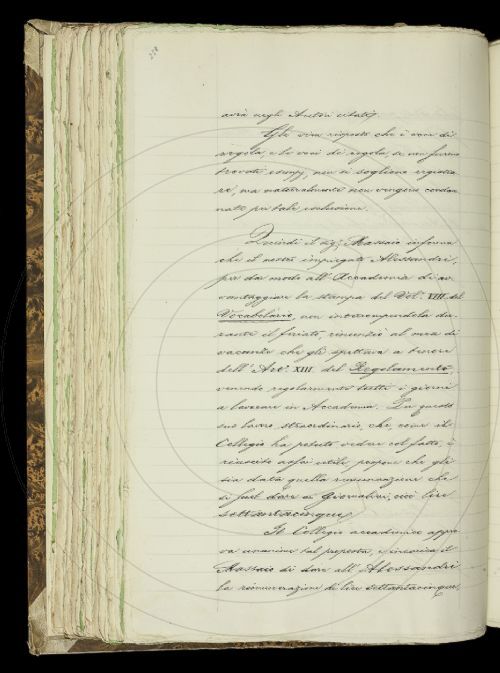 avrà negli Autori citati.
Gli vien risposto che i voci di
regola, e le voci di regola, se non furono
trovati esempj, non si sogliono registra-
re, ma naturalmente non vengono condan-
nate per tale esclusione.
Quindi il sig. Massaio informa
che il nostro impiegato Alessandri,
per dar modo all'Accademia di av-
vantaggiare la stampa del Vol. XIII del
Vocabolario, non interrompendola du-
rante il feriato, rinunziò al mese di
vacanze che gli spettava a tenore
dell'Art. XIII del Regolamento,
venendo regolarmente tutti i giorni
a lavorare in Accademia. In questo
suo lavoro straordinario, che, come il
Collegio ha potuto vedere col fatto, è
riuscito assai utile, propone che gli
sia data quella rimunerazione che
si suol dare ai Giornalini, cioè lire
settantacinque.
Il Collegio accademico appro-
va unanime tal proposta, e incarica il
Massaio di dare all'Alessandri
la rimunerazione di lire settantacinque,